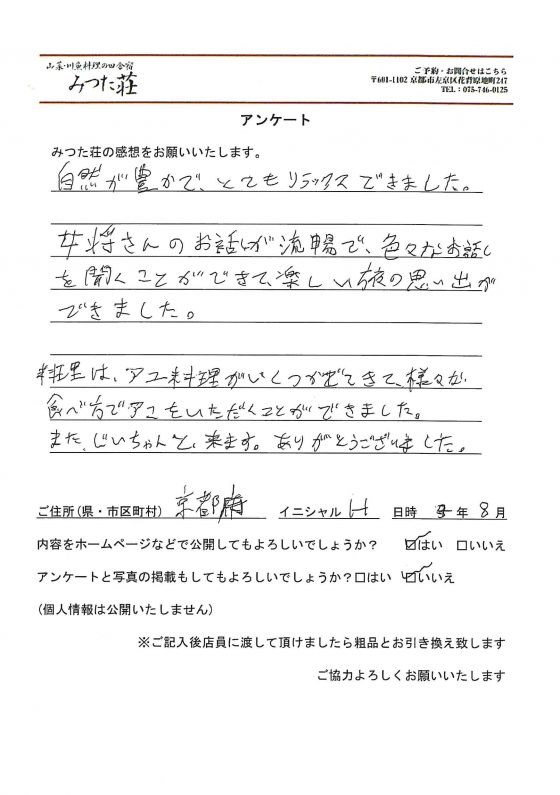 山菜・川魚料理の四舎宿
みつた荘
ご予約・お問合せはこちら
〒601-1102 京都市左京区花背原地町247
TEL：075-746-0125
アンケート
みつた荘の感想をお願いいたします。
自然が豊かで、とてもリラックスできました。
女将さんのお話しが流暢で、色々なお話し
を聞くことができて、楽しい夜の思い出が
できました。
料理は、アユ料理がいくつかでてきて、様々な
食べ方でアユをいただくことができました。
また、じいちゃんと、来ます。ありがとうございました。
ご住所(県・市区町村) 京都府 イニシャル H 日時 年 8 月
内容をホームページなどで公開してもよろしいでしょうか？ ☑はい □いいえ
アンケートと写真の掲載もしてもよろしいでしょうか？□はい ☑いいえ
(個人情報は公開いたしません)
※ご記入後店員に渡して頂けましたら粗品とお引き換え致します
ご協力よろしくお願いいたします